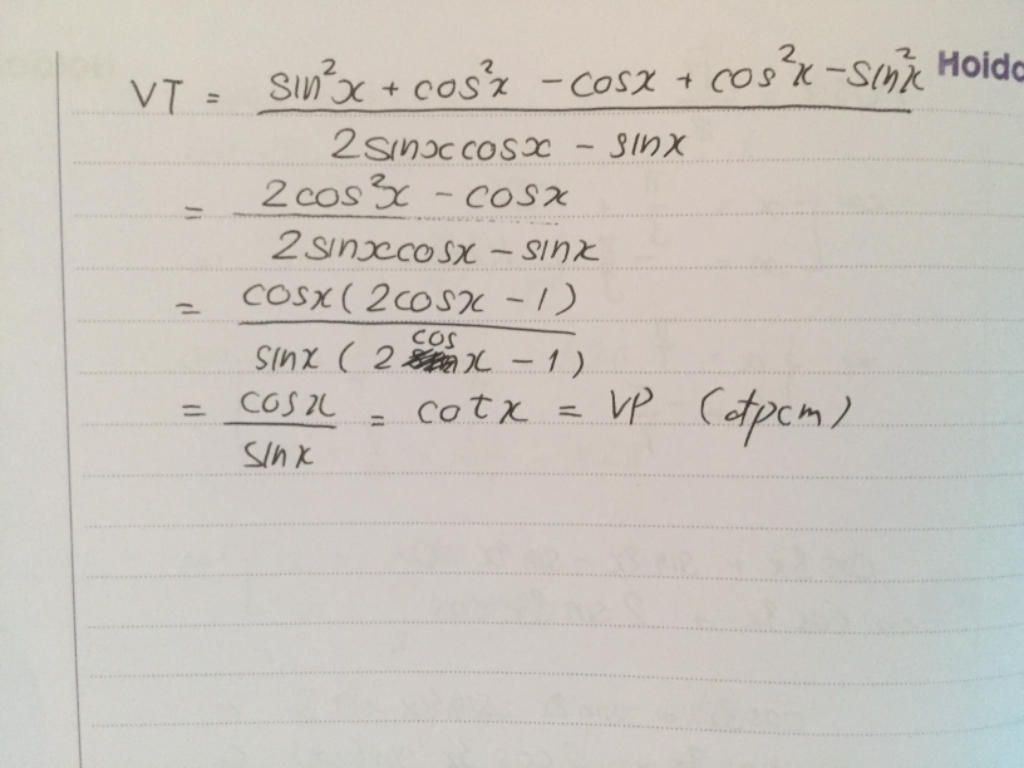 VT = sin²x + cos²x - cosx + cos²x - sin²x Hoidc
2sinxcosx - sinx
= 2cos²x - cosx
2sinxcosx - sinx
= cosx(2cosx - 1)
sinx(2cosx - 1)
= cosx = cotx = VP (đpcm)
sinx